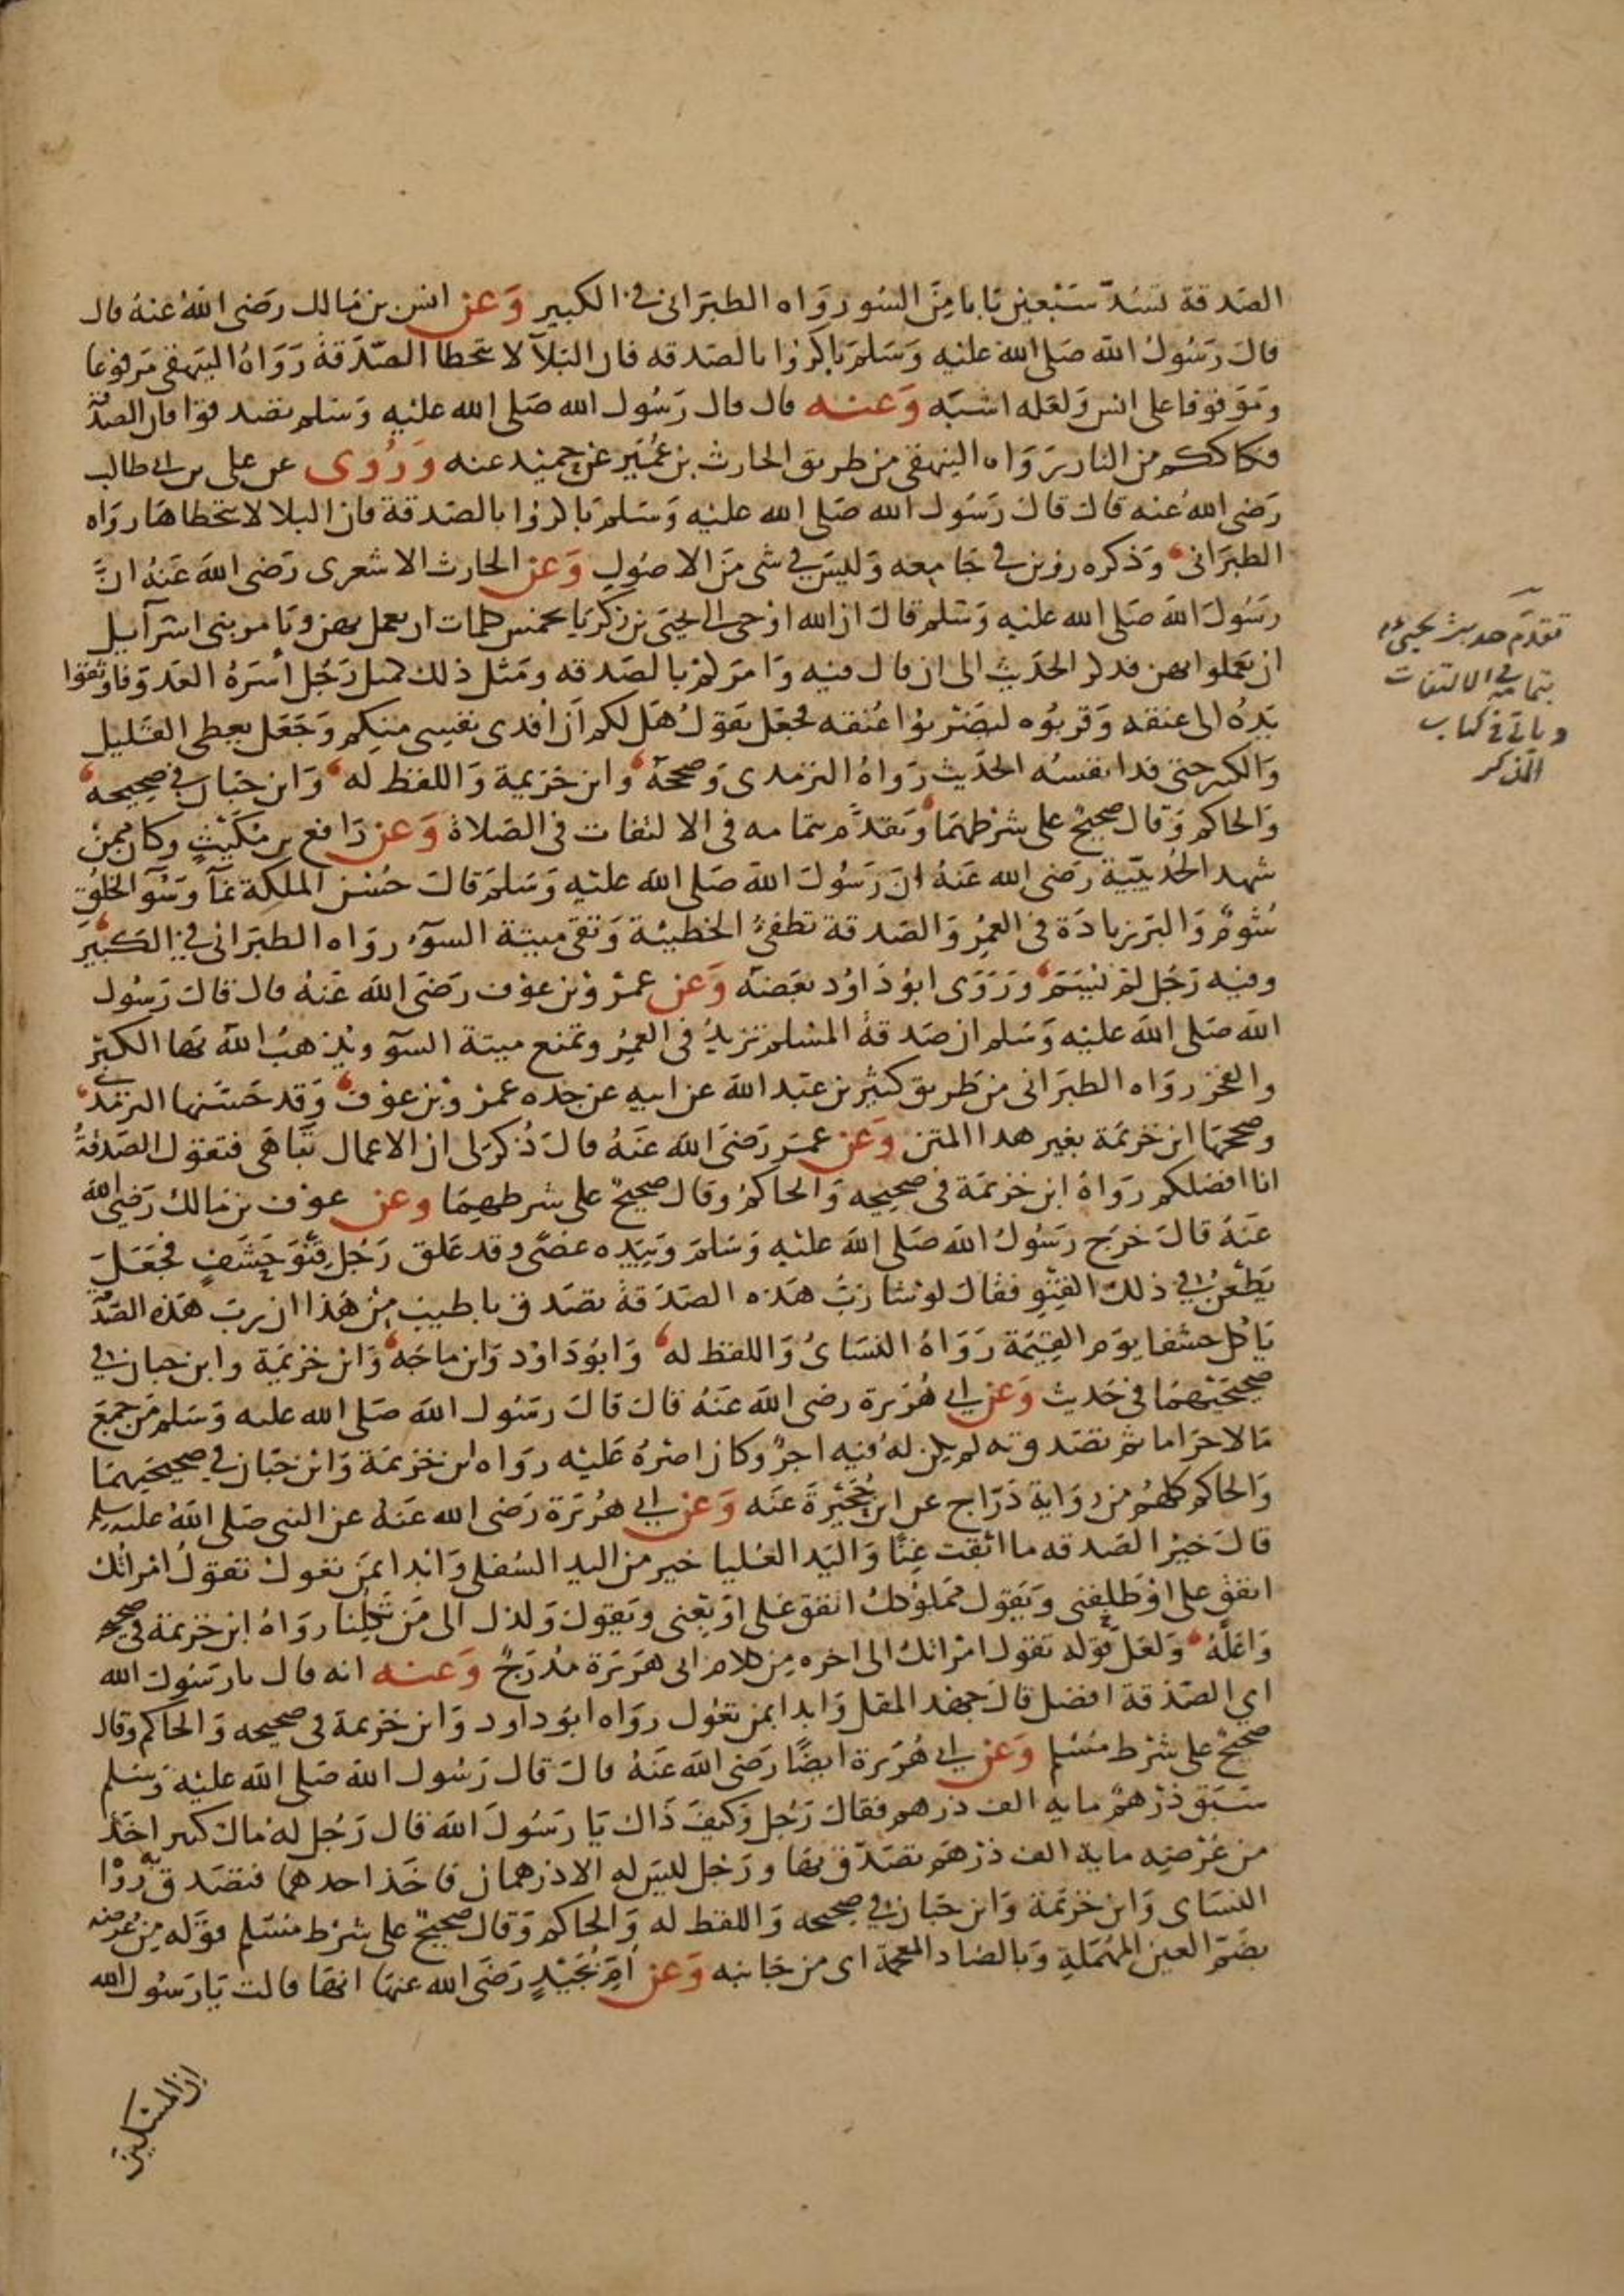 الصدقة تسد سبعين بابا من السوء رواه الطبراني في الكبير وعن انس بن مالك رضي الله عنه قال
قال رسول الله صلى الله عليه وسلم باكروا بالصدقه فان البلآ لا يتخطا الصدقة رواه البيهقي مرفوعا
وموقوفا على انس ولعله اشبه وعنه قال قال رسول الله صلى الله عليه وسلم تصدقوا فان الصدقة
فكاككم من النار رواه البيهقي من طريق الحارث بن عمير عن حميد عنه وروى عن علي بن ابي طالب
رضي الله عنه قال قال رسول الله صلى الله عليه وسلم باكروا بالصدقة فان البلا لا يتخطاها رواه
الطبراني وذكره رزين في جامعه وليس في شى من الاصول وعن الحارث الاشعري رضي الله عنه ان
رسول الله صلى الله عليه وسلم قال ان الله اوحى الى يحيى بن زكريا بخمس كلمات ان يعمل بهن ويامر بني اسرآيل
ان يعملوا بهن فذكر الحديث الى ان قال فيه وامركم بالصدقه ومثل ذلك كمثل رجل اسره العدو فاوثقوا
يده الى عنقه وقربوه ليضربوا عنقه فجعل يقول هل لكم ان افدى نفسي منكم وجعل يعطى القليل
والكثير حتى فدا نفسه الحديث رواه الترمذي وصححه وابن خزيمة واللفظ له وابن حبان في صحيحه
والحاكم وقال صحيح على شرطهما وتقدم بتمامه في الالتفات في الصلاة وعن رافع بن مكيث وكان ممن
شهد الحديبية رضي الله عنه ان رسول الله صلى الله عليه وسلم قال حسن الملكة نمآ وسوء الخلق
شوم والبر زيادة في العمر والصدقة تطفئ الخطيئة وتقي ميتة السوء رواه الطبراني في الكبير
وفيه رجل لم يسم وروى ابو داود بعضه وعن عمرو بن عوف رضي الله عنه قال قال رسول
الله صلى الله عليه وسلم ان صدقة المسلم تزيد في العمر وتمنع ميتة السوء ويذهب الله بها الكبر
والفخر رواه الطبراني من طريق كثير بن عبد الله عن ابيه عن جده عمرو بن عوف وقد حسنها الترمذي
وصححها ابن خزيمة بغير هذا المتن وعن عمر رضي الله عنه قال ذكر لي ان الاعمال تباهى فتقول الصدقة
انا افضلكم رواه ابن خزيمة في صحيحه والحاكم وقال صحيح على شرطهما وعن عوف بن مالك رضي الله
عنه قال خرج رسول الله صلى الله عليه وسلم وبيده عصى وقد علق رجل قنو حشف فجعل
يطعن في ذلك القنو فقال لو شا رب هذه الصدقة تصدق باطيب من هذا ان رب هذه الصدقة
ياكل حشفا يوم القيمة رواه النسائ واللفظ له وابو داود وابن ماجه وابن خزيمة وابن حبان في
صحيحيهما في حديث وعن ابي هريرة رضي الله عنه قال قال رسول الله صلى الله عليه وسلم من جمع
مالا حراما ثم تصدق به لم يكن له فيه اجر وكان اصره عليه رواه ابن خزيمة وابن حبان في صحيحيهما
والحاكم كلهم من رواية دراج عن ابن حجيرة عنه وعن ابي هريرة رضي الله عنه عن النبي صلى الله عليه وسلم
قال خير الصدقه ما ابقت غنا واليد العليا خير من اليد السفلى وابدا بمن تعول تقول امراتك
انفق على او طلقني ويقول مملوكك انفق على او بعني ويقول ولدك الى من تكلنا رواه ابن خزيمة في صحيحه
واعله ولعل قوله تقول امراتك الى اخره من كلام ابى هريرة مدرج وعنه انه قال يا رسول الله
اي الصدقة افضل قال جهد المقل وابدا بمن تعول رواه ابو داود وابن خزيمة في صحيحه والحاكم وقال
صحيح على شرط مسلم وعن ابي هريرة ايضا رضي الله عنه قال قال رسول الله صلى الله عليه وسلم
سبق درهم ماية الف درهم فقال رجل وكيف ذاك يا رسول الله قال رجل له مال كثير اخذ
من عرضه ماية الف درهم تصدق بها ورجل ليس له الا درهمان فاخذ احدهما فتصدق به رواه
النساى وابن خزيمة وابن حبان في صحيحه واللفظ له والحاكم وقال صحيح على شرط مسلم قوله من عرضه
بضم العين المهملة وبالضاد المعجمة اى من جانبه وعن ام بجيد رضي الله عنها انها قالت يا رسول الله
ان المسكين
تقدم حديث يحيى
بتمامه في الالتفات
وياتي في كتاب
الذكر